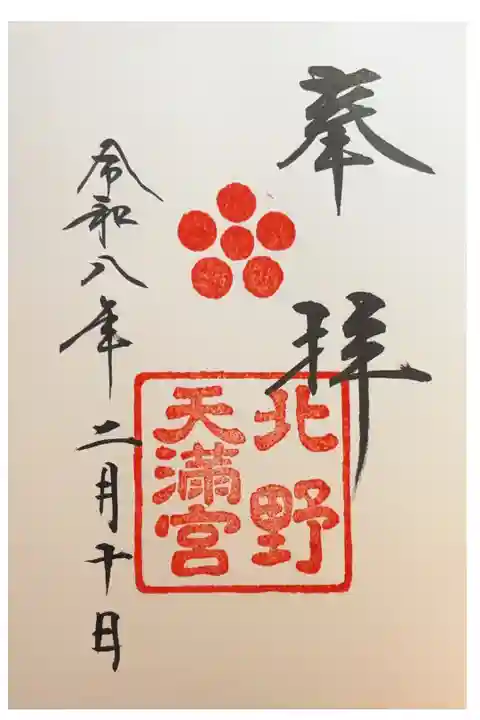 奉拝
北野
天満宮
令和八年二月十日